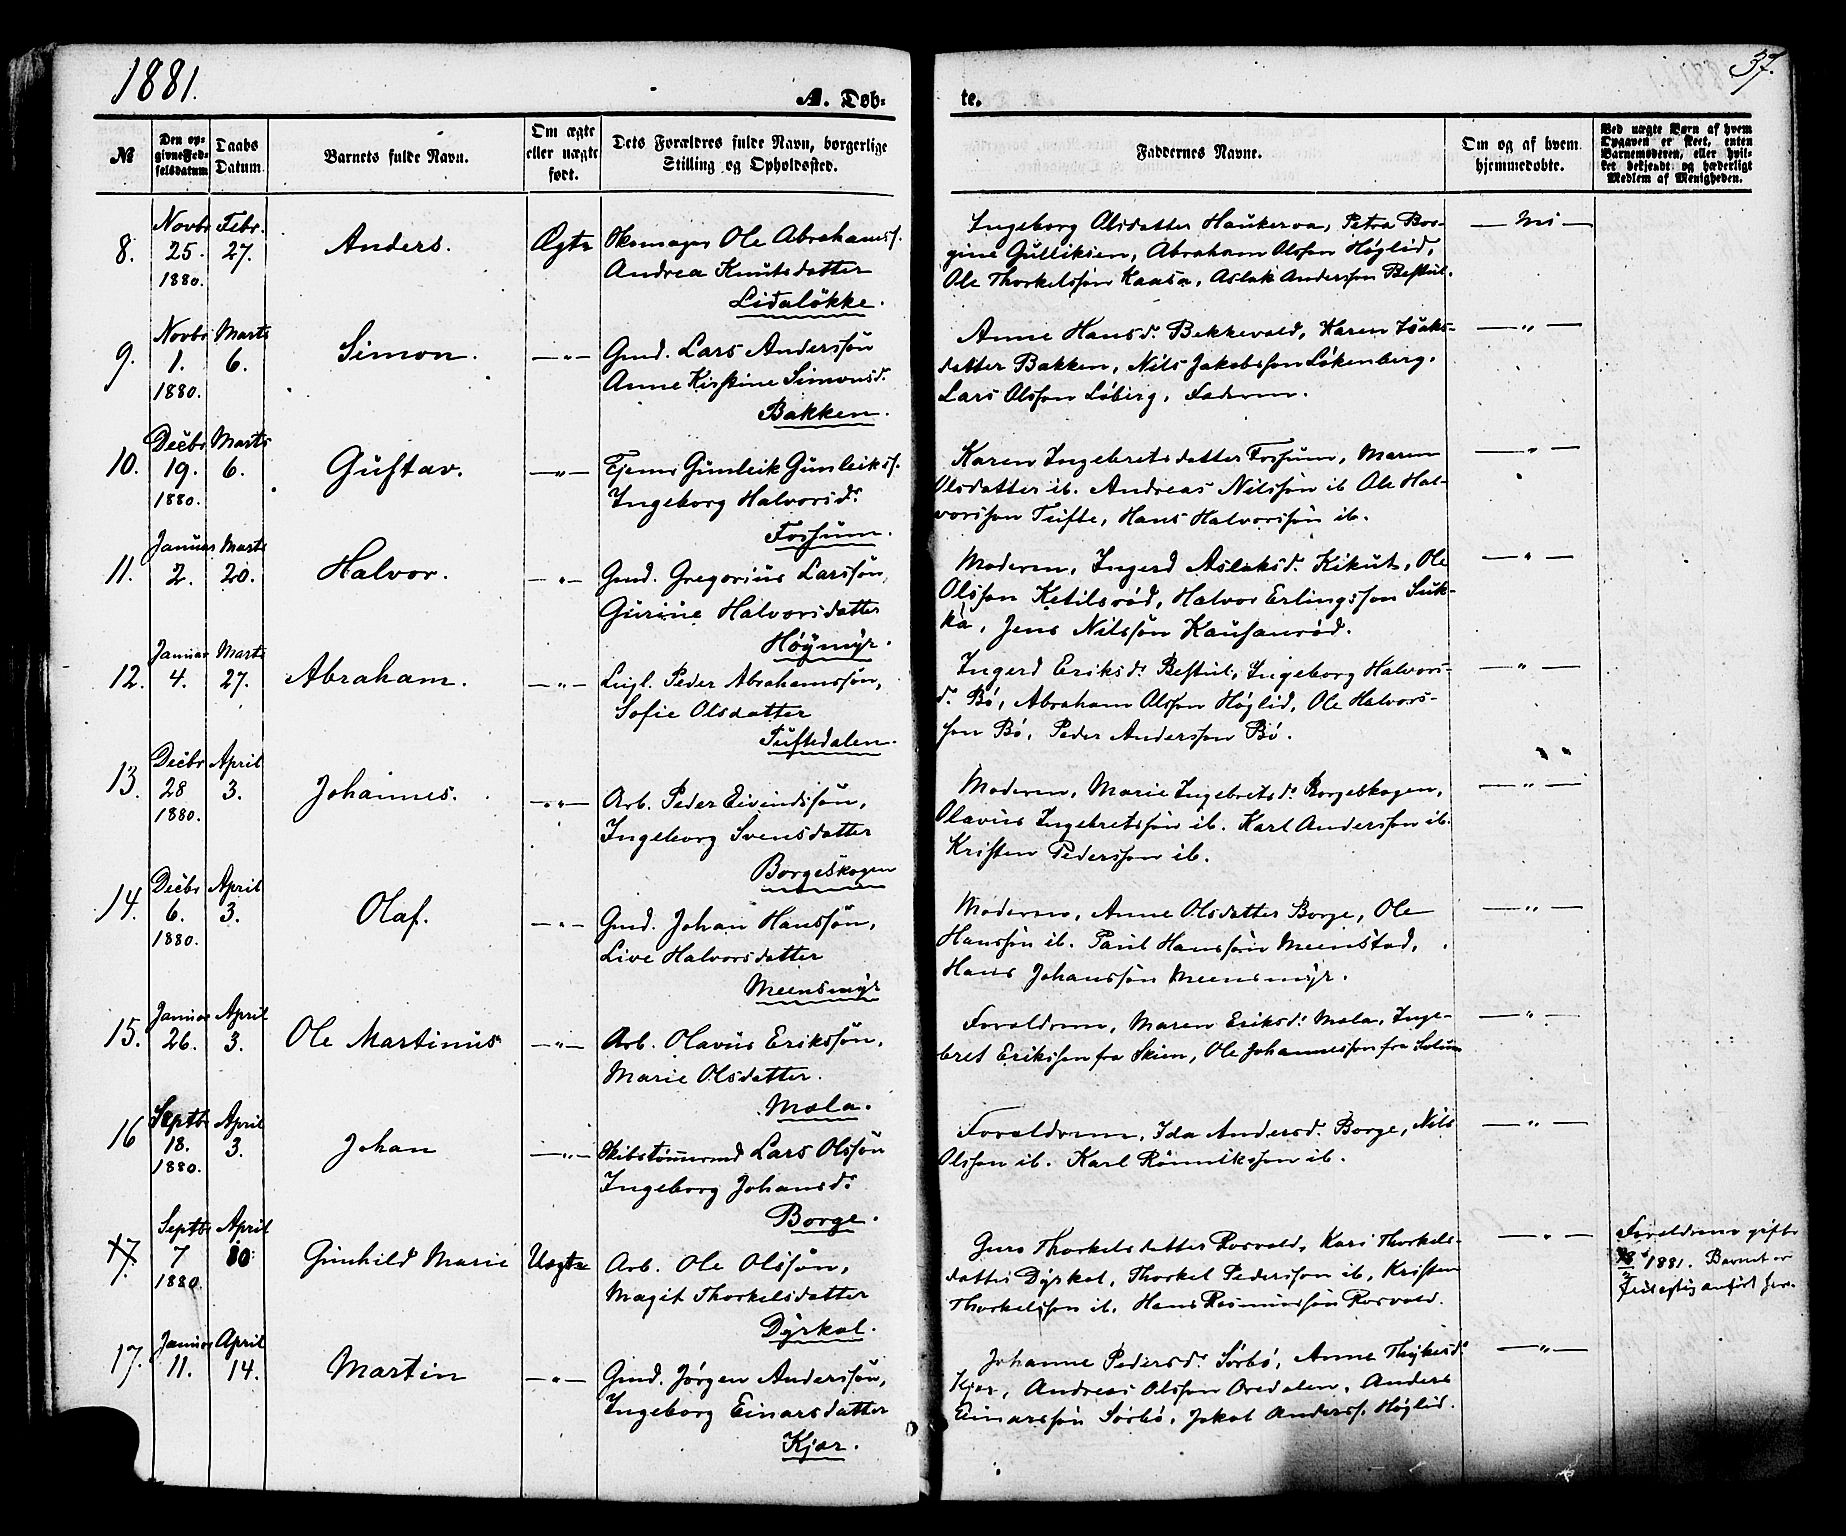 1881.
37.
A. Døb-
te.
№
Den op-
givne Fød-
selsdatum
Daabs
Datum
Barnets fulde Navn.
Om ægte
eller uægte
født.
Dets Forældres fulde Navn, borgerlige
Stilling og Opholdssted.
Faddernes Navne.
Om og af hvem
hjemmedøbte.
Ved uægte Børn af hvem
Opgaven er skeet, enten
Barnemoderen, eller hvil-
ket bekjendt og hæderligt
Medlem af Menigheden.
8.
Novbr
25.
1880.
Febr.
27.
Anders.
Ægte
Skomager Ole Abrahamss.
Andrea Knutsdatter
Lidaløkke.
Ingeborg Olsdatter Haukeroa, Petra Bor-
gine Gulliksen, Abraham Olsson Høglid,
Ole Thorkelssøn Kaasa, Aslak Anderssøn Bestul.
9.
Novbr
1.
1880.
Marts
6.
Simon.
— " —
Gmd. Lars Anderssøn
Anne Kirstine Simonsd.
Bakken.
Anne Hansd. Bekkevald, Karen Isaks-
datter Bakken, Nils Jakobsson Løkenberg,
Lars Olsson Løberg, Faderen.
— " —
10.
Decbr
19.
1880.
Marts
6.
Gustav.
— " —
Tjener Gunleik Gunleikss.
Ingeborg Halvorsdr
Fossum.
Karen Ingebretsdatter Fossum, Maren
Olsdatter ib. Andreas Nilssøn ib Ole Hal-
vorsson Tufte, Hans Halvorssøn ib.
— " —
11.
Januar
2.
Marts
20.
Halvor.
— " —
Gmd. Gregorius Larssøn,
Gurine Halvorsdatter
Høymyr.
Moderen, Ingerd Aslaksd. Kikut, Ole
Olsson Ketilsrød, Halvor Erlingsson Suk-
ka, Jens Nilssøn Kausanrød.
— " —
12.
Januar
4.
Marts
27.
Abraham.
— " —
Leigl. Peder Abrahamssøn,
Sofie Olsdatter
Tuftedalen.
Ingerd Eriksdr Bestul, Ingeborg Halvors-
dr Bø, Abraham Olsson Høglid, Ole Halvors-
son Bø, Peder Andersson Bø.
— " —
13.
Decbr
28
1880.
April
3.
Johannes.
— " —
Arb. Peder Eivindssøn,
Ingeborg Svensdatter
Borgeskogen
Moderen, Marie Ingebretsdr Borgeskogen,
Olavus Ingebretssøn ib. Karl Andersson ib.
Kristen Pedersson ib.
— " —
14.
Decbr
6.
1880.
April
3.
Olaf.
— " —
Gmd. Johan Hanssøn,
Live Halvorsdatter
Meensmyr
Moderen, Anne Olsdatter Borge, Ole
Hanssøn ib. Paul Hanssøn Meenstad,
Hans Johanssøn Meensmyr.
— " —
15.
Januar
26.
April
3.
Ole Martinus
— " —
Arb. Olavus Erikssøn,
Marie Olsdatter.
Mæla.
Forældrene, Maren Eriksdr Mæla, Inge-
bret Eriksson fra Skien, Ole Johannesson fra Solum
— " —
16
Septbr
18.
1880.
April
3.
Johan
— " —
Skibstømmermd Lars Olssøn
Ingeborg Johansdr
Borge.
Forældrene, Ida Andersd. Borge, Nils
Olsson ib. Karl Rønniksson ib.
— " —
17.
Septbr
7
1880
April
10.
Gunhild Marie
Uægte
Arb. Ole Olssøn,
Margit Thorkelsdatter
Dyrkol.
Guro Thorkelsdatter Rosvald, Kari Thorkels-
datter Dyrkol, Thorkel Pedersson ib, Kristen
Thorkelsson ib, Hans Rasmussøn Rosvald.
— " —
Forældrene gifte
1881. Barnet er
17.
Januar
11.
April
14.
Martin
— " —
Gmd. Jørgen Anderssøn,
Ingeborg Einarsdatter
Kjær.
Johanne Pedersdr Sørbø, Anne Thykesdr
Kjær, Andreas Olsson Ovedalen, Anders
Einarssøn Sørbø, Jakob Anderss. Høglid.
— " —